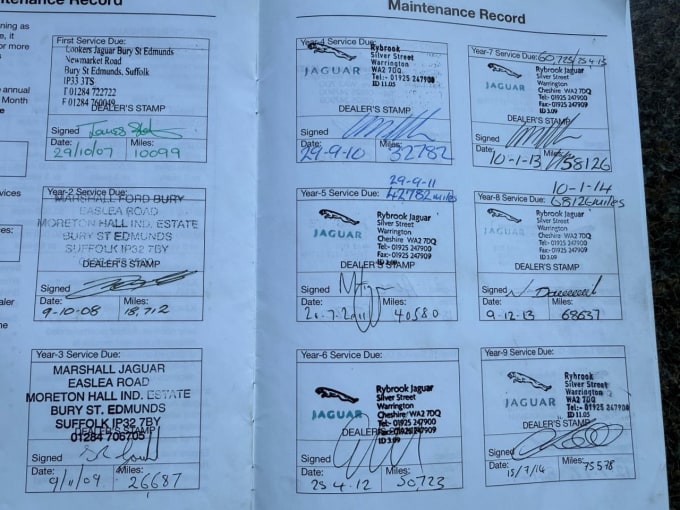 Maintenance Record
First Service Due:
Lonkers Jaguar Bury St Edmunds
Newmarket Road
Bury St. Edmunds, Suffolk
IP33 3TS
T 01284 722722
F 01284 760049
DEALER'S STAMP
Signed
Date: Miles:
29/10/07 10099
Year-2 Service Due:
MARSHALL FORD BURY
EASLEA ROAD
MORETON HALL IND. ESTATE
BURY ST EDMUNDS
SUFFOLK IP32 7BY
DEALER'S STAMP
Signed
Date: Miles:
9-10-08 18,712
Year-3 Service Due:
MARSHALL JAGUAR
EASLEA ROAD
MORETON HALL IND. ESTATE
BURY ST. EDMUNDS
SUFFOLK IP32 7BY
01284 706705
DEALER'S STAMP
Signed
Date: Miles:
9/11/09 26687
Maintenance Record
Year-4 Service Due:
JAGUAR
Rybrook
Silver Street
Warrington
WA2 7DQ
Tel:- 01925 247900
ID 11.05
DEALER'S STAMP
Signed
Date: Miles:
29-9-10 32782
29-9-11
Year-5 Service Due: 42782 miles
JAGUAR
Rybrook Jaguar
Silver Street
Warrington
Cheshire WA2 7DQ
Tel:- 01925 247900
Fax:- 01925 247909
ID 3.09
DEALER'S STAMP
Signed
Date: Miles:
20.7.2011 40580
Year-6 Service Due:
JAGUAR
Rybrook Jaguar
Silver Street
Warrington
Cheshire WA2 7DQ
Tel:- 01925 247900
Fax:- 01925 247909
ID 3.09
DEALER'S STAMP
Signed
Date: Miles:
25 4.12 50,723
Year-7 Service Due: 60,723/25 4 13
JAGUAR
Rybrook Jaguar
Silver Street
Warrington
Cheshire WA2 7DQ
Tel:- 01925 247900
Fax:- 01925 247909
ID 3.09
DEALER'S STAMP
Signed
Date: Miles:
10-1-13 58126
10-1-14
Year-8 Service Due: 68126 miles
JAGUAR
Rybrook Jaguar
Silver Street
Warrington
Cheshire WA2 7DQ
Tel:- 01925 247900
Fax:- 01925 247909
ID 3.09
DEALER'S STAMP
Signed
Date: Miles:
9-12-13 68637
Year-9 Service Due:
JAGUAR
Rybrook
Silver Street
Warrington
WA2 7DQ
Tel:- 01925 247900
ID 11.05
DEALER'S STAMP
Signed
Date: Miles:
15/7/14 75578